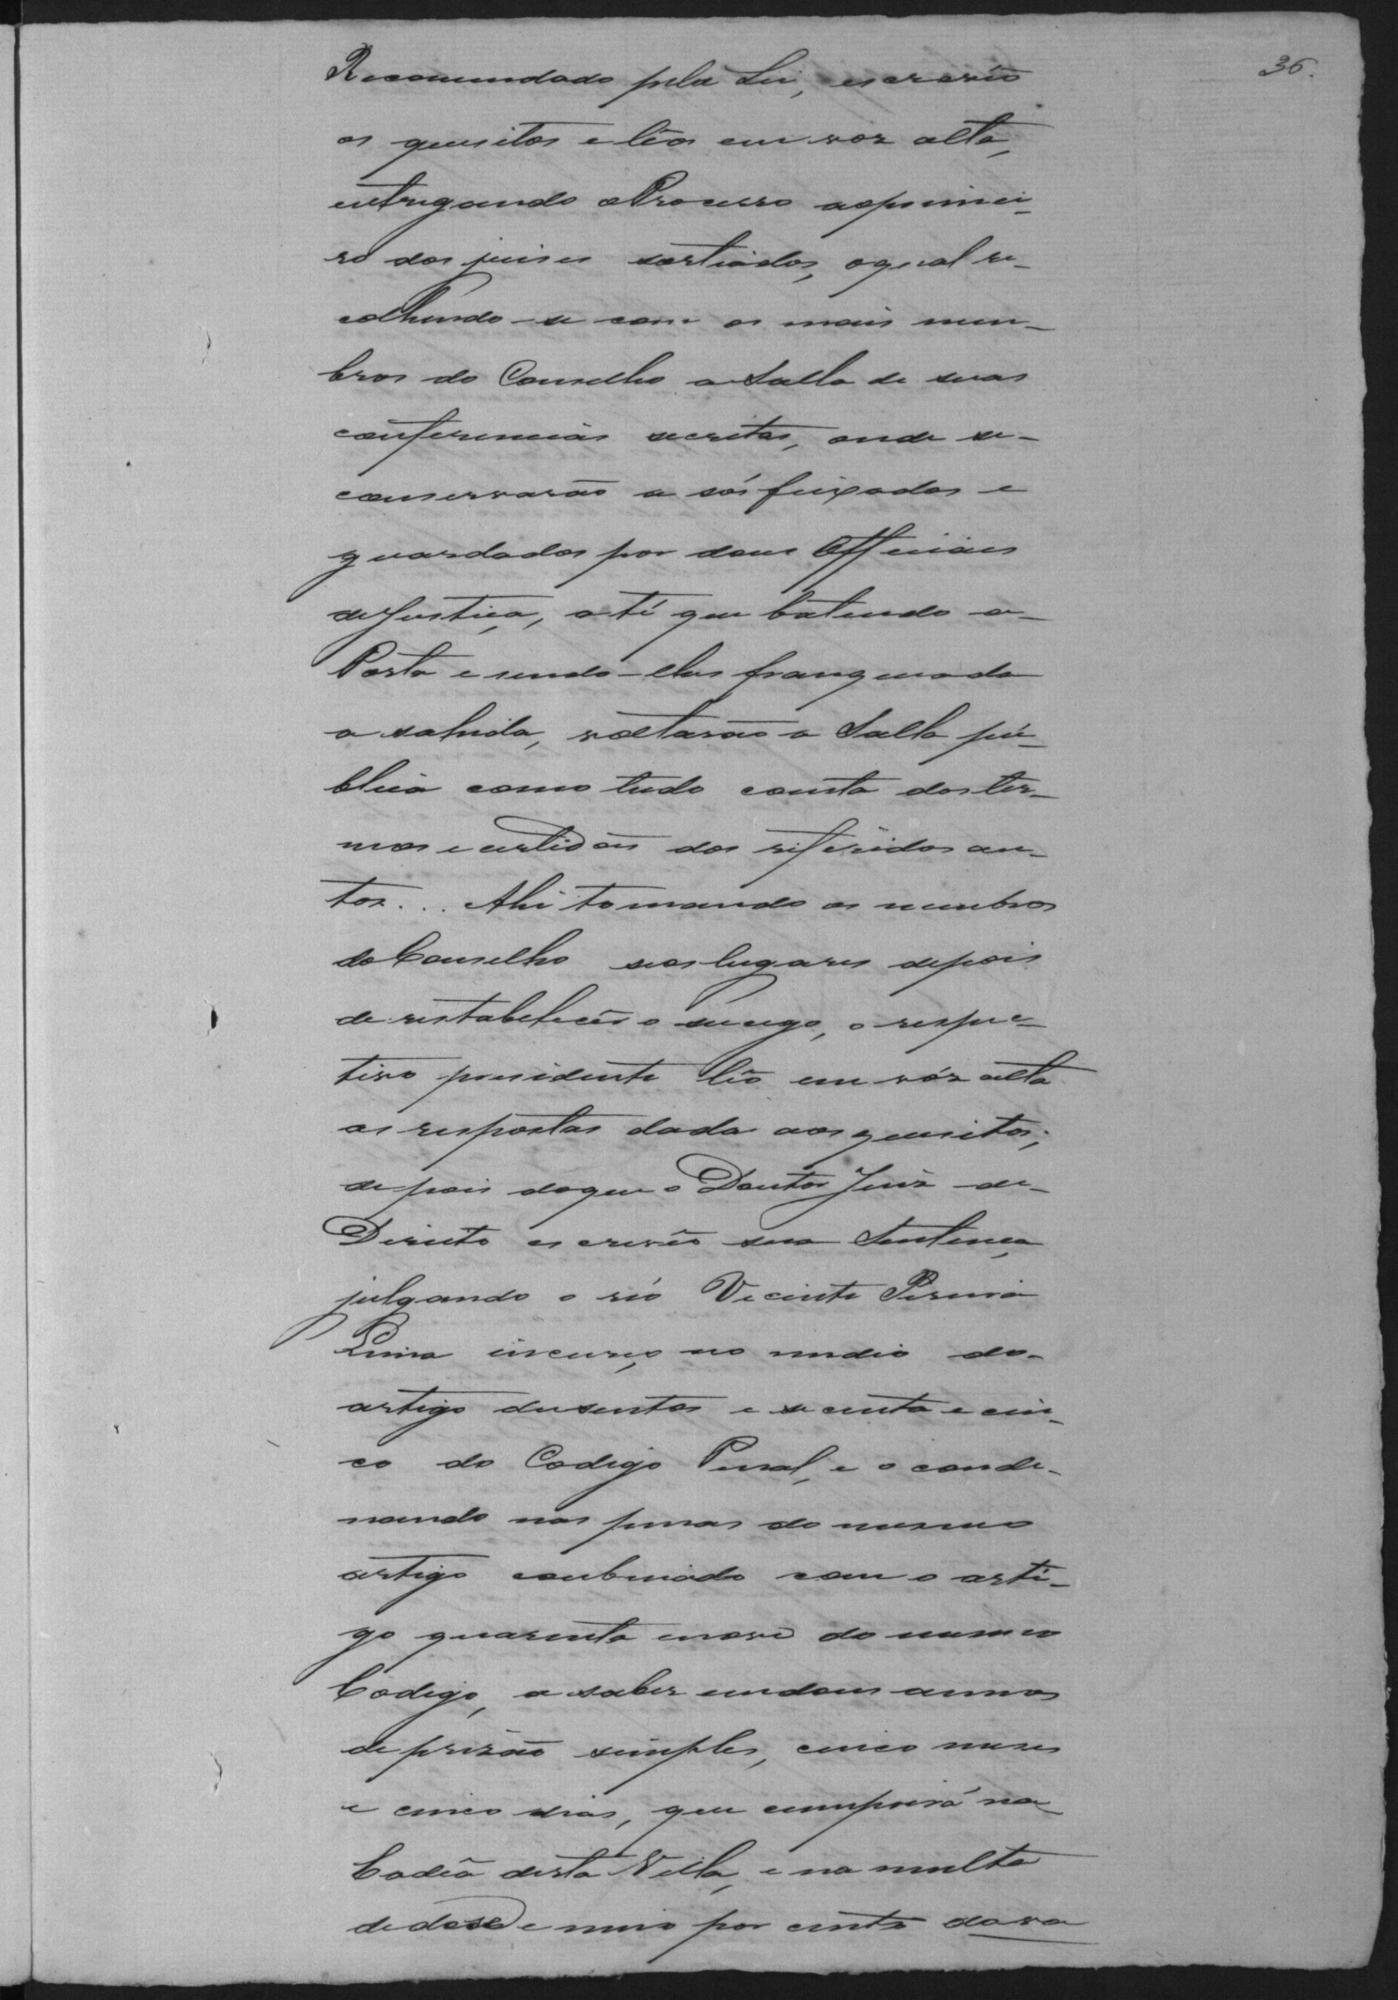 36.
Recommendado pela Lei, escrevêo
os quesitos e lêos em voz alta,
entregando o Processo ao primei-
ro dos juises sorteados, o qual re-
colhendo-se com os mais mem-
bros do Conselho a Salla de suas
conferencias secretas, onde se-
conservarão a sós feixados e
guardados por dous Officiaes
de Justiça, até que batendo a-
Porta e sendo-lhes franqueada
a sahida, voltarão a Salla pú-
blica como tudo consta dos ter-
mos e certidões dos referidos au-
tos... Ahi tomando os membros
do Conselho seos lugares depois
de restabelecido o socego, o respec-
tivo presidente lêo em vóz alta
as respostas dada aos quesitos;
depois do que o Doutor Juiz de-
Direito escrevêo sua Sentença
julgando o réo Vicente Pereira
Lima incurço no medio do-
artigo dusentos e secenta e cin-
co do Codigo Penal, e o conde-
nando nas penas do mesmo
artigo conbinado com o arti-
go quarenta e nove do mesmo
Codigo, a saber em dous annos
de prisão simples, cinco meses
e cinco dias, que cumprirá na
Cadêa desta Villa, e na multa
de dose e meio por cento do va